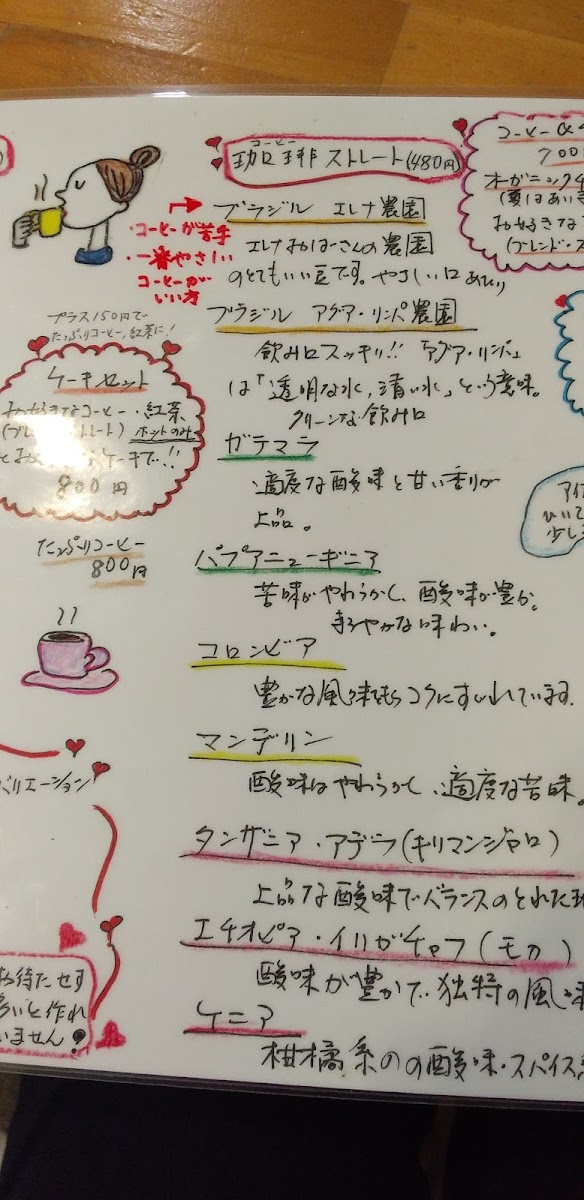 コーヒー
珈琲 ストレート(480円)
ブラジル エレナ農園
エレナおばーさんの農園
のとてもいい豆です。やさしい口あたり
・コーヒーが苦手
・一番やさしい
コーヒーが
いい方
ブラジル アグア・リンパ農園
飲み口スッキリ!!「アグア・リンパ」
は「透明な水,清い水」という意味。
クリーンな飲み口
ガテマラ
適度な酸味と甘い香りが
上品。
パプアニューギニア
苦味がやわらかく、酸味が豊か。
まろやかな味わい。
コロンビア
豊かな風味をもちコクにすぐれています.
マンデリン
酸味はやわらかく、適度な苦味。
タンザニア・アデラ(キリマンジャロ)
上品な酸味でバランスのとれた
エチオピア・イリガチャフ(モカ)
酸味が豊かで独特の風味
ケニア
柑橘系のの酸味・スパイス
プラス150円で
たっぷりコーヒー,紅茶に!
ケーキセット
お好きなコーヒー・紅茶
(ブレ ストレート) ホットのみ
ケーキで!!
800円
たっぷりコーヒー
800円
バリエーション
お待たせす
いと作れ
いません!
コーヒー
700
オーガニック
(夏はあい
お好きな
(ブレンド・ス
アイ
ひいて
少し